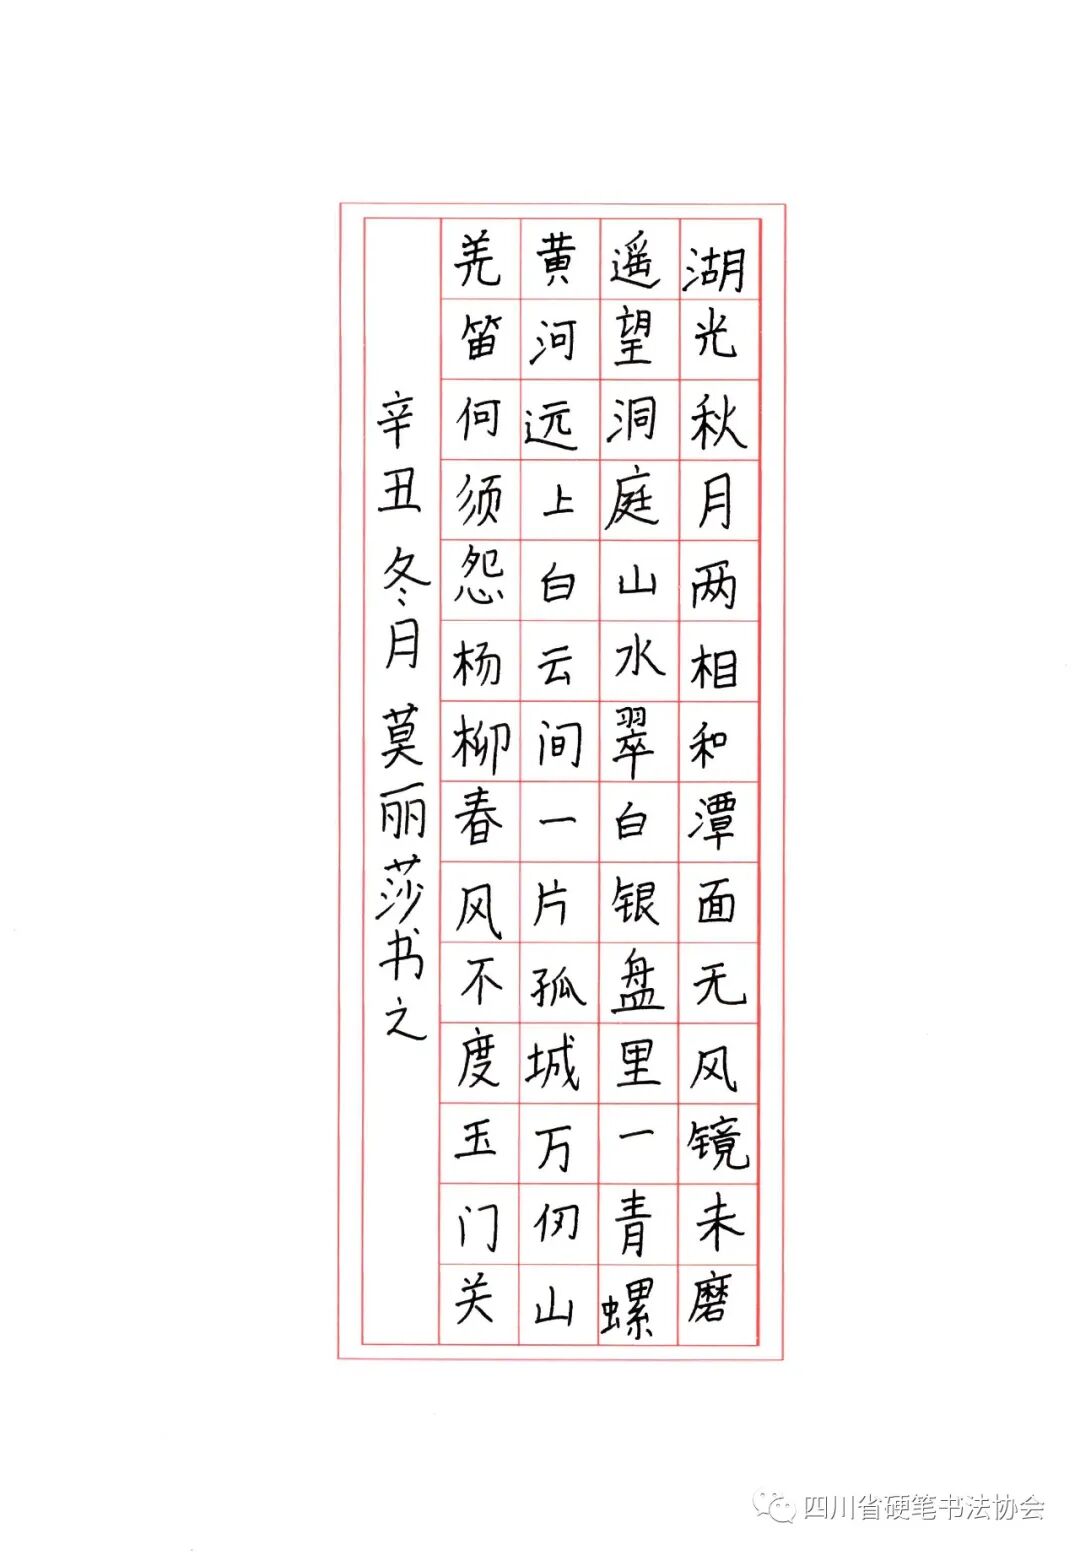 湖光秋月两相和潭面无风镜未磨
遥望洞庭山水翠白银盘里一青螺
黄河远上白云间一片孤城万仞山
羌笛何须怨杨柳春风不度玉门关
辛丑冬月莫丽莎书之
四川省硬笔书法协会